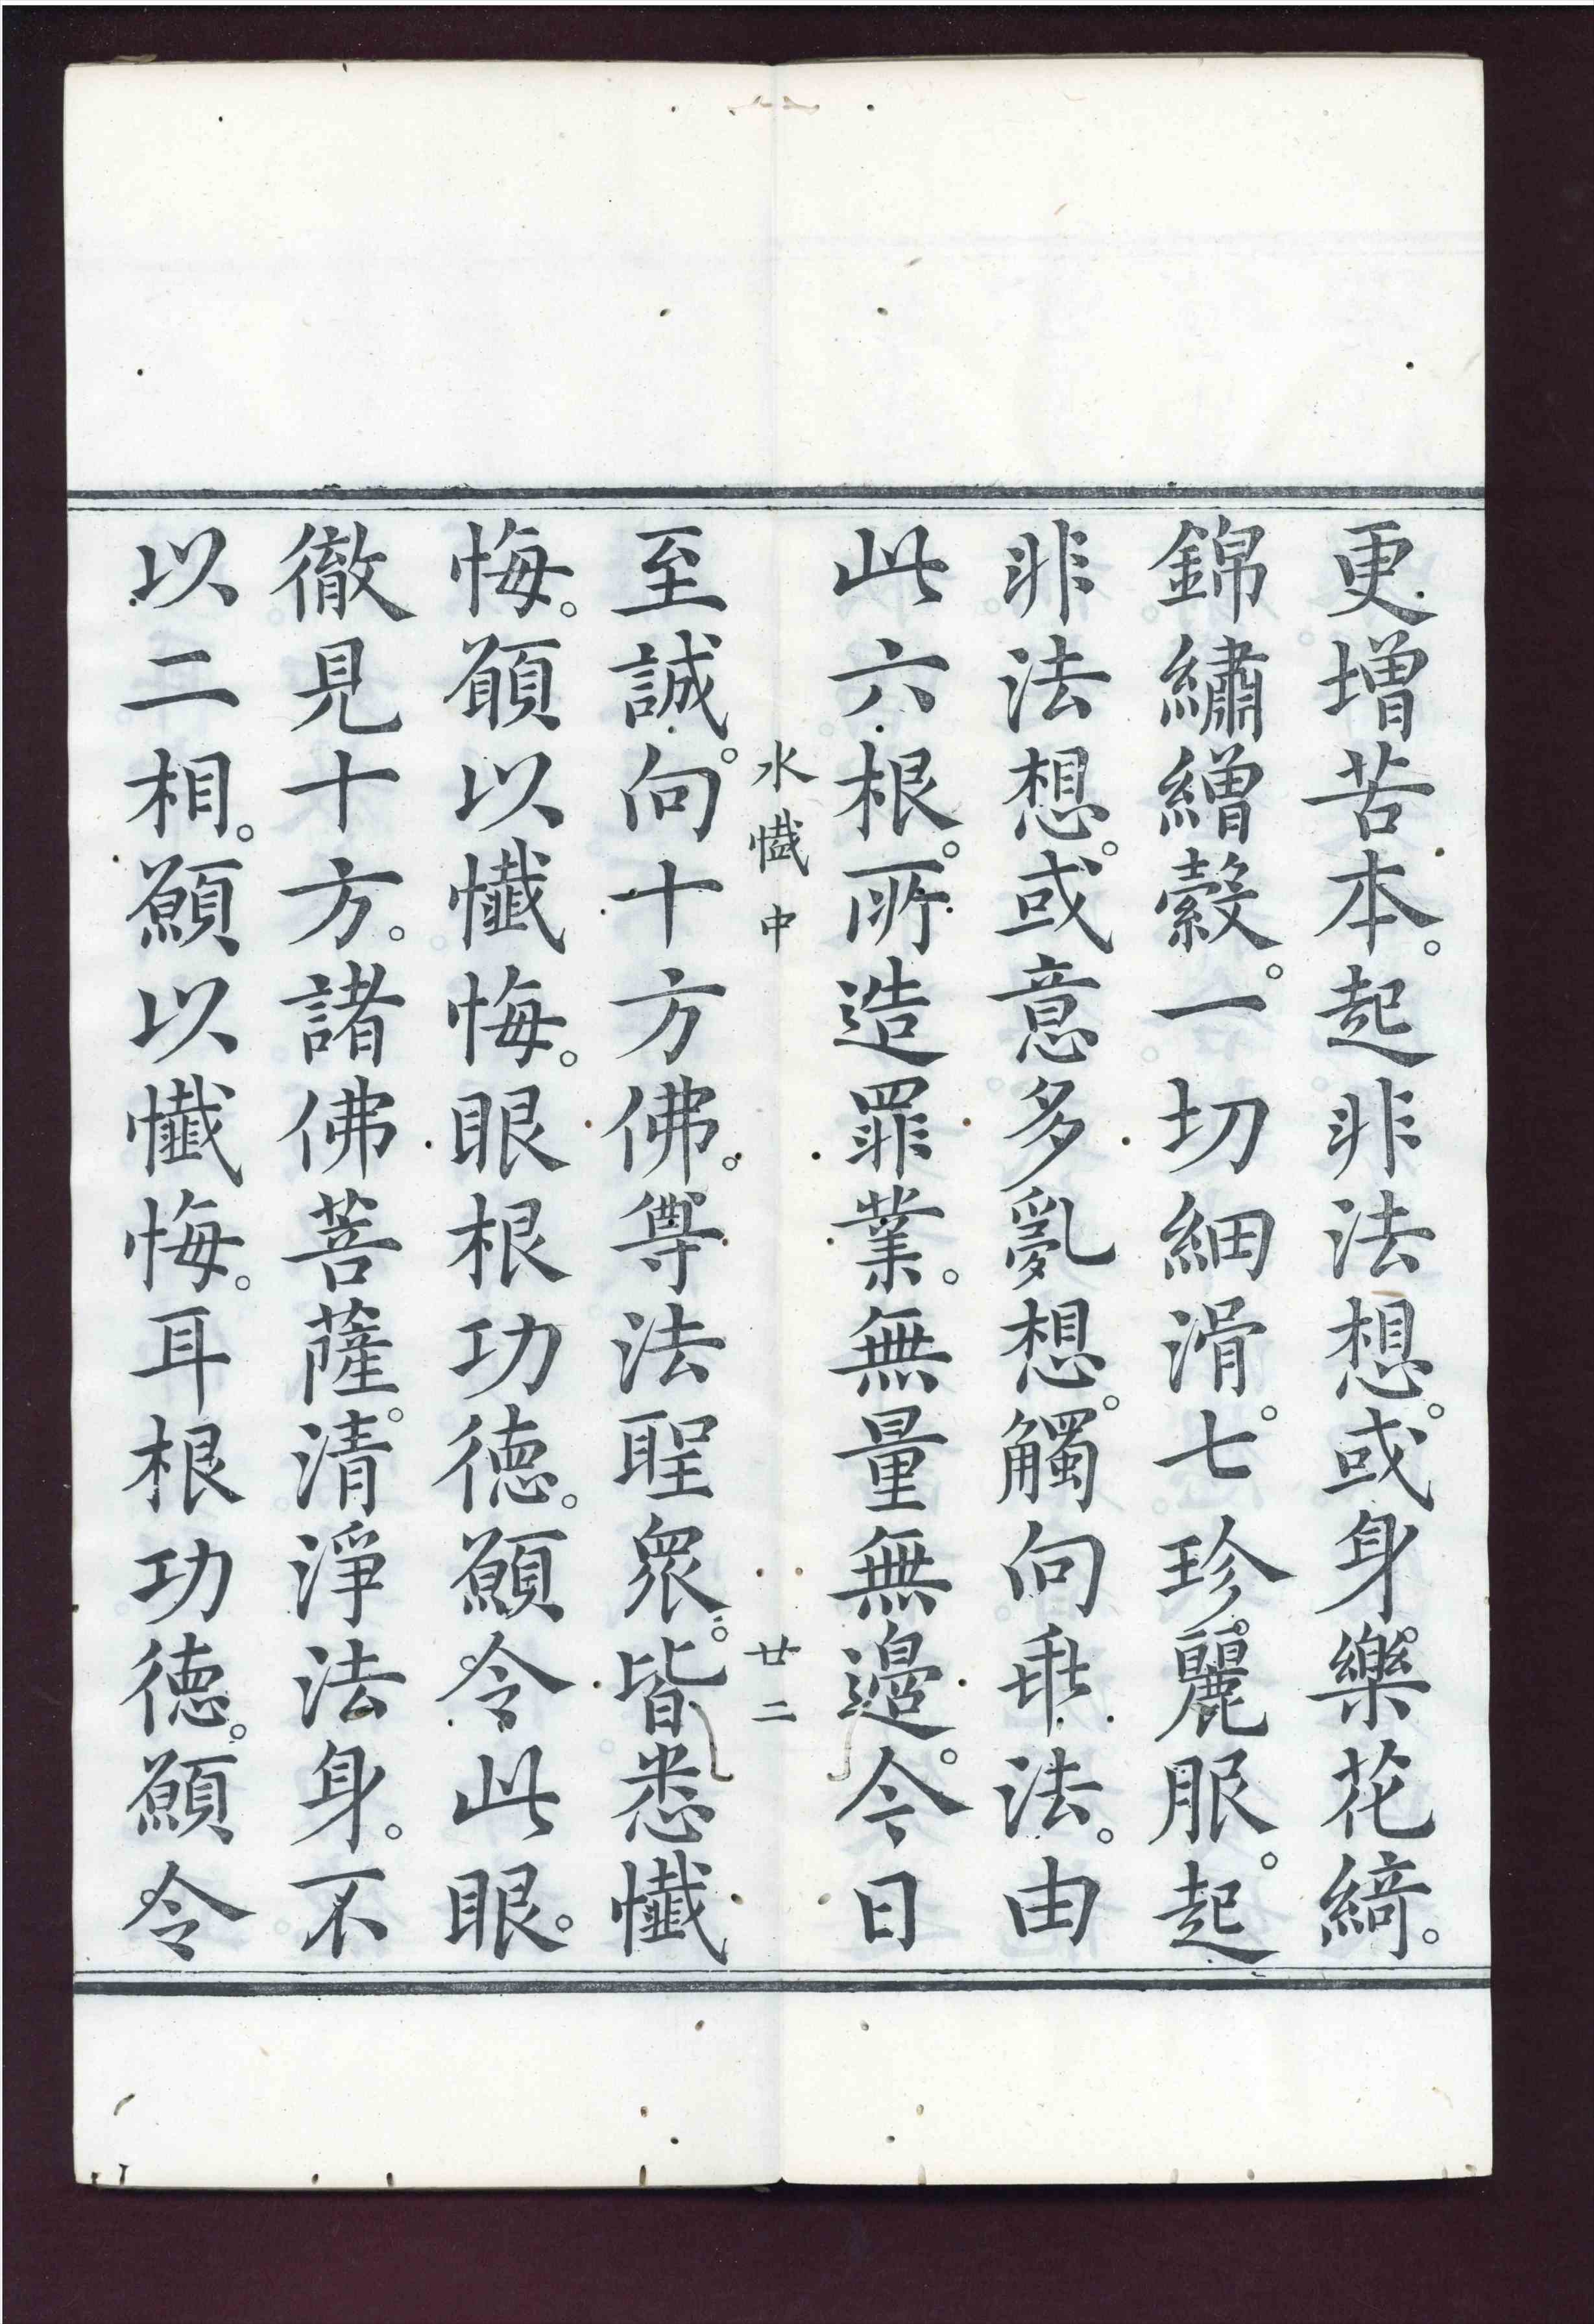 更增苦本。起非法想。或身樂花綺。
錦繡繒縠。一切細滑。七珍麗服。起
非法想。或意多亂想。觸向乖法。由
此六根。所造罪業。無量無邊。今日
水懺中 廿二
至誠。向十方佛。尊法聖眾。皆悉懺
悔。願以懺悔。眼根功德。願令此眼。
徹見十方。諸佛菩薩。清淨法身。不
以二相。願以懺悔。耳根功德。願令